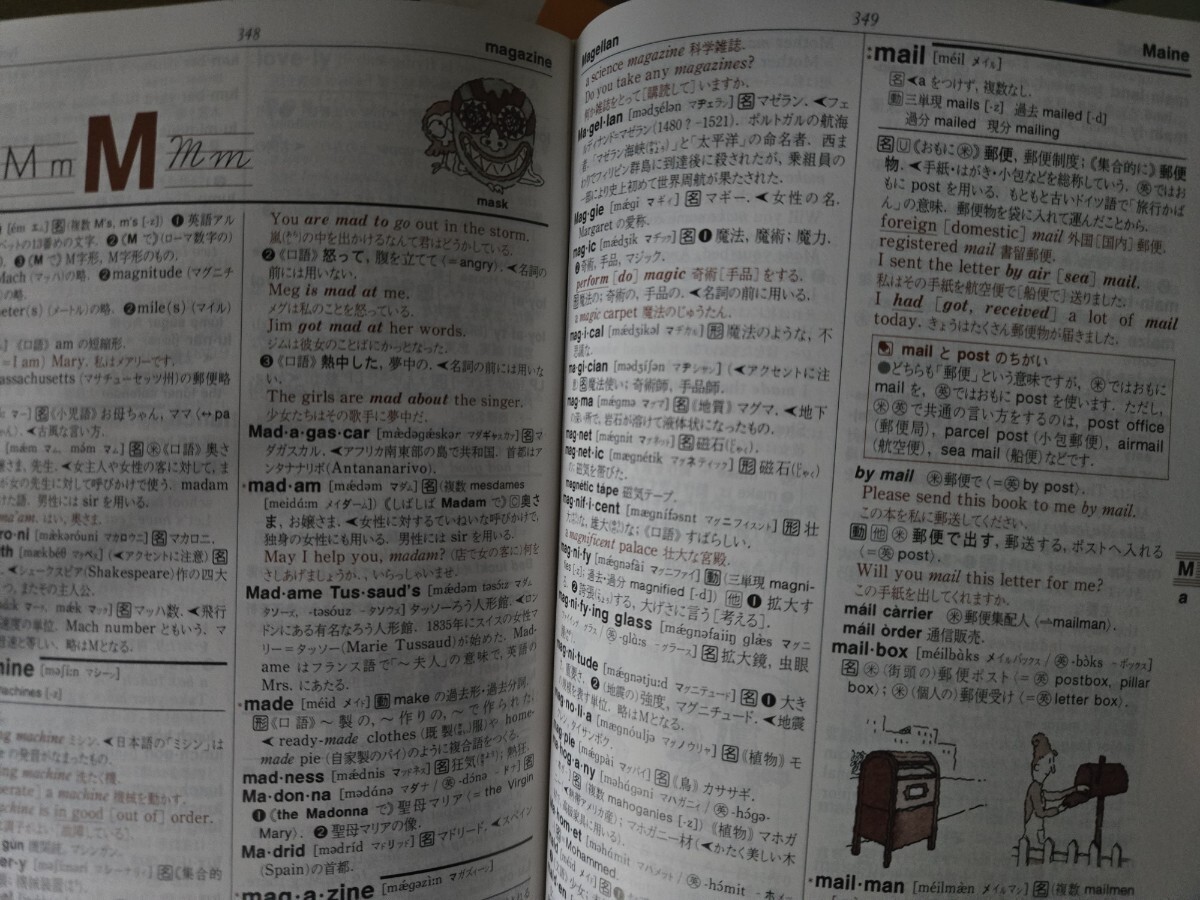 348
magazine
M m M Mm
mask
[ém エム] 名 (複数 M's, m's [-z]) ❶ 英語アル
ベットの13番めの文字. ❷《M で》(ローマ数字の)
❸《M で》M字形, M字形のもの.
Mach (マッハ)の略. ❷magnitude (マグニチ
の略.
eter(s) (メートル)の略. ❷mile(s) (マイル)
の略.
am の短縮形.
= I am) Mary. 私はメアリーです.
assachusetts (マサチューセッツ州)の郵便略
名《小児語》お母ちゃん, ママ (↔pa
). ◀古風な言い方.
名《米》《口語》奥さ
さま, 先生. ◀女主人や女性の客に対して, ま
が女の先生に対して呼びかけで使う. madam
けた語. 男性には sir を用いる.
ma'am. はい, 奥さま.
名 マカロニ.
(◀アクセントに注意) 名
◀シェークスピア(Shakespeare)作の四大
つ, またその主人公.
名 マッハ数. ◀飛行
速度の単位. Mach number ともいう. マ
音速と等しい. 略はMとなる.
hine [məʃíːn マシーン]
machines [-z]
ng machine ミシン. ◀日本語の「ミシン」は
の発音がなまったもの.
ing machine 洗たく機.
erate] a machine 機械を動かす.
achine is in good [out of] order.
gun 機関銃, マシンガン.
You are mad to go out in the storm.
嵐(あらし)の中を出かけるなんて君はどうかしている.
❷《口語》怒って, 腹を立てて (=angry). ◀名詞の
前には用いない.
Meg is mad at me.
メグは私のことを怒っている.
Jim got mad at her words.
ジムは彼女のことばにかっとなった.
❸《口語》熱中した, 夢中の. ◀名詞の前には用いな
い.
The girls are mad about the singer.
少女たちはその歌手に夢中だ.
Mad·a·gas·car [mædəgæskər マダギャスカァ] 名 マ
ダガスカル. ◀アフリカ南東部の島で共和国. 首都はア
ンタナナリボ(Antananarivo).
·mad·am [mædəm マダム] 名 (複数 mesdames
[meidáːm メイダーム])《しばしば Madam で》C 奥さ
ま, お嬢さま. ◀女性に対するていねいな呼びかけで,
独身の女性にも用いる. 男性には sir を用いる.
May I help you, madam? (店で女の客に) 何を
さしあげましょうか., いらっしゃいませ.
Mad·ame Tus·saud's [mædəm təsóuz マダム
タソーズ, -təsóuz -タソウズ] タッソーろう人形館. ◀ロン
ドンにある有名なろう人形館. 1835年にスイスの女性マ
リー=タッソー(Marie Tussaud)が始めた. Mad-
ame はフランス語で「～夫人」の意味で, 英語の
Mrs. にあたる.
·made [méid メイド] 動 make の過去形・過去分詞.
形《口語》～製の, ～作りの, ～で作られた.
◀ready-made clothes (既製服) や home-
made pie (自家製のパイ) のように複合語をつくる.
mad·ness [mædnis マッドネス] 名 狂気; 熱狂.
Ma·don·na [mədɑ́nə マダナ / 英 -dɔ́nə -ドナ] 名
❶《the Madonna で》聖母マリア (=the Virgin
Mary). ❷ 聖母マリアの像.
Ma·drid [mədríd マドリッド] 名 マドリード. ◀スペイン
(Spain)の首都.
·mag·a·zine [mægəzìːn マガズィーン]
349
Magellan
Maine
a science magazine 科学雑誌.
Do you take any magazines?
何か雑誌をとって[購読して]いますか.
Ma·gel·lan [mədʒélən マヂェラン] 名 マゼラン. ◀フェ
ルディナンド=マゼラン(1480?-1521). ポルトガルの航海
者.「マゼラン海峡」と「太平洋」の命名者. 西ま
わりでフィリピン群島に到達後に殺されたが, 乗組員の
一部により史上初めて世界周航が果たされた.
Mag·gie [mægi マギィ] 名 マギー. ◀女性の名.
Margaret の愛称.
mag·ic [mædʒik マヂック] 名 ❶ 魔法, 魔術; 魔力.
❷ 奇術, 手品, マジック.
perform [do] magic 奇術[手品]をする.
形 魔法の; 奇術の, 手品の. ◀名詞の前に用いる.
a magic carpet 魔法のじゅうたん.
mag·i·cal [mædʒikəl マヂカル] 形 魔法のような, 不
思議な.
ma·gi·cian [mədʒíʃən マヂシャン] (◀アクセントに注
意) 名 魔法使い; 奇術師, 手品師.
mag·ma [mægmə マッグマ] 名《地質》マグマ. ◀地下
の深い所で, 岩石が溶けて液体状になったもの.
mag·net [mægnit マァネット] 名 磁石(じしゃく).
mag·net·ic [mægnétik マッネティック] 形 磁石(じしゃく)
の, 磁気を帯びた.
magnetic tape 磁気テープ.
mag·nif·i·cent [mægnífəsnt マッニフィスント] 形 壮
大な, 雄大な;《口語》すばらしい.
a magnificent palace 壮大な宮殿.
mag·ni·fy [mægnəfài マッニファイ] 動 (三単現 magni-
fies [-z]; 過去・過分 magnified [-d]) 他 ❶ 拡大す
る. ❷ 誇張する, 大げさに言う[考える].
mag·ni·fy·ing glass [mægnəfaiiŋ glæs
/ 英 -glɑ̀ːs -グラース] 名 拡大鏡, 虫眼
mag·ni·tude [mægnətjùːd マァニテュード] 名 ❶ 大き
さ, 重要さ. ❷ (地震の)強度, マグニチュード. ◀地震
の規模を表す単位. 略はMとなる.
mag·no·li·a [mægnóuljə マッノウリャ] 名《植物》モ
クレン, タイサンボク.
mag·pie [mægpài マッパイ] 名《鳥》カササギ.
ma·hog·a·ny [məhɑ́gəni マハガニィ / 英 -hɔ́gə-
(複数 mahoganies [-z])《植物》マホガ
ニー (◀熱帯アメリカ産); マホガニー材 (◀かたく美しい木
材で, 高級家具に用いる).
Ma·hom·et [məhɑ́mit マハメット / 英 -hɔ́mit
=Mohammed.
:mail [méil メイル]
名 ◀a をつけず, 複数なし.
動 三単現 mails [-z] 過去 mailed [-d]
過分 mailed 現分 mailing
名 U《おもに米》郵便, 郵便制度;《集合的に》郵便
物. ◀手紙・はがき・小包などを総称していう. 英ではお
もに post を用いる. もともと古いドイツ語で「旅行かば
ん」の意味. 郵便物を袋に入れて運んだことから.
foreign [domestic] mail 外国[国内]郵便.
registered mail 書留郵便.
I sent the letter by air [sea] mail.
私はその手紙を航空便で[船便で]送りました.
I had [got, received] a lot of mail
today. きょうはたくさん郵便物が届きました.
mail と post のちがい
●どちらも「郵便」という意味ですが, 米ではおもに
mail を, 英ではおもに post を使います. ただし,
米英で共通の言い方をするのは, post office
(郵便局), parcel post (小包郵便), airmail
(航空便), sea mail (船便) などです.
by mail 米 郵便で (=英 by post).
Please send this book to me by mail.
この本を私に郵送してください.
動 他 米 郵便で出す, 郵送する, ポストへ入れる
(=英 post).
Will you mail this letter for me?
この手紙を出してくれますか.
máil càrrier 米 郵便集配人 (→mailman).
máil òrder 通信販売.
mail·box [méilbɑ̀ks メイルバックス / 英 -bɔ̀ks -ボックス]
名 米 (街頭の)郵便ポスト (=英 postbox, pillar
box); 米 (個人の)郵便受け (=英 letter box).
·mail·man [méilmæn メイルマン] 名 (複数 mailmen
M
a